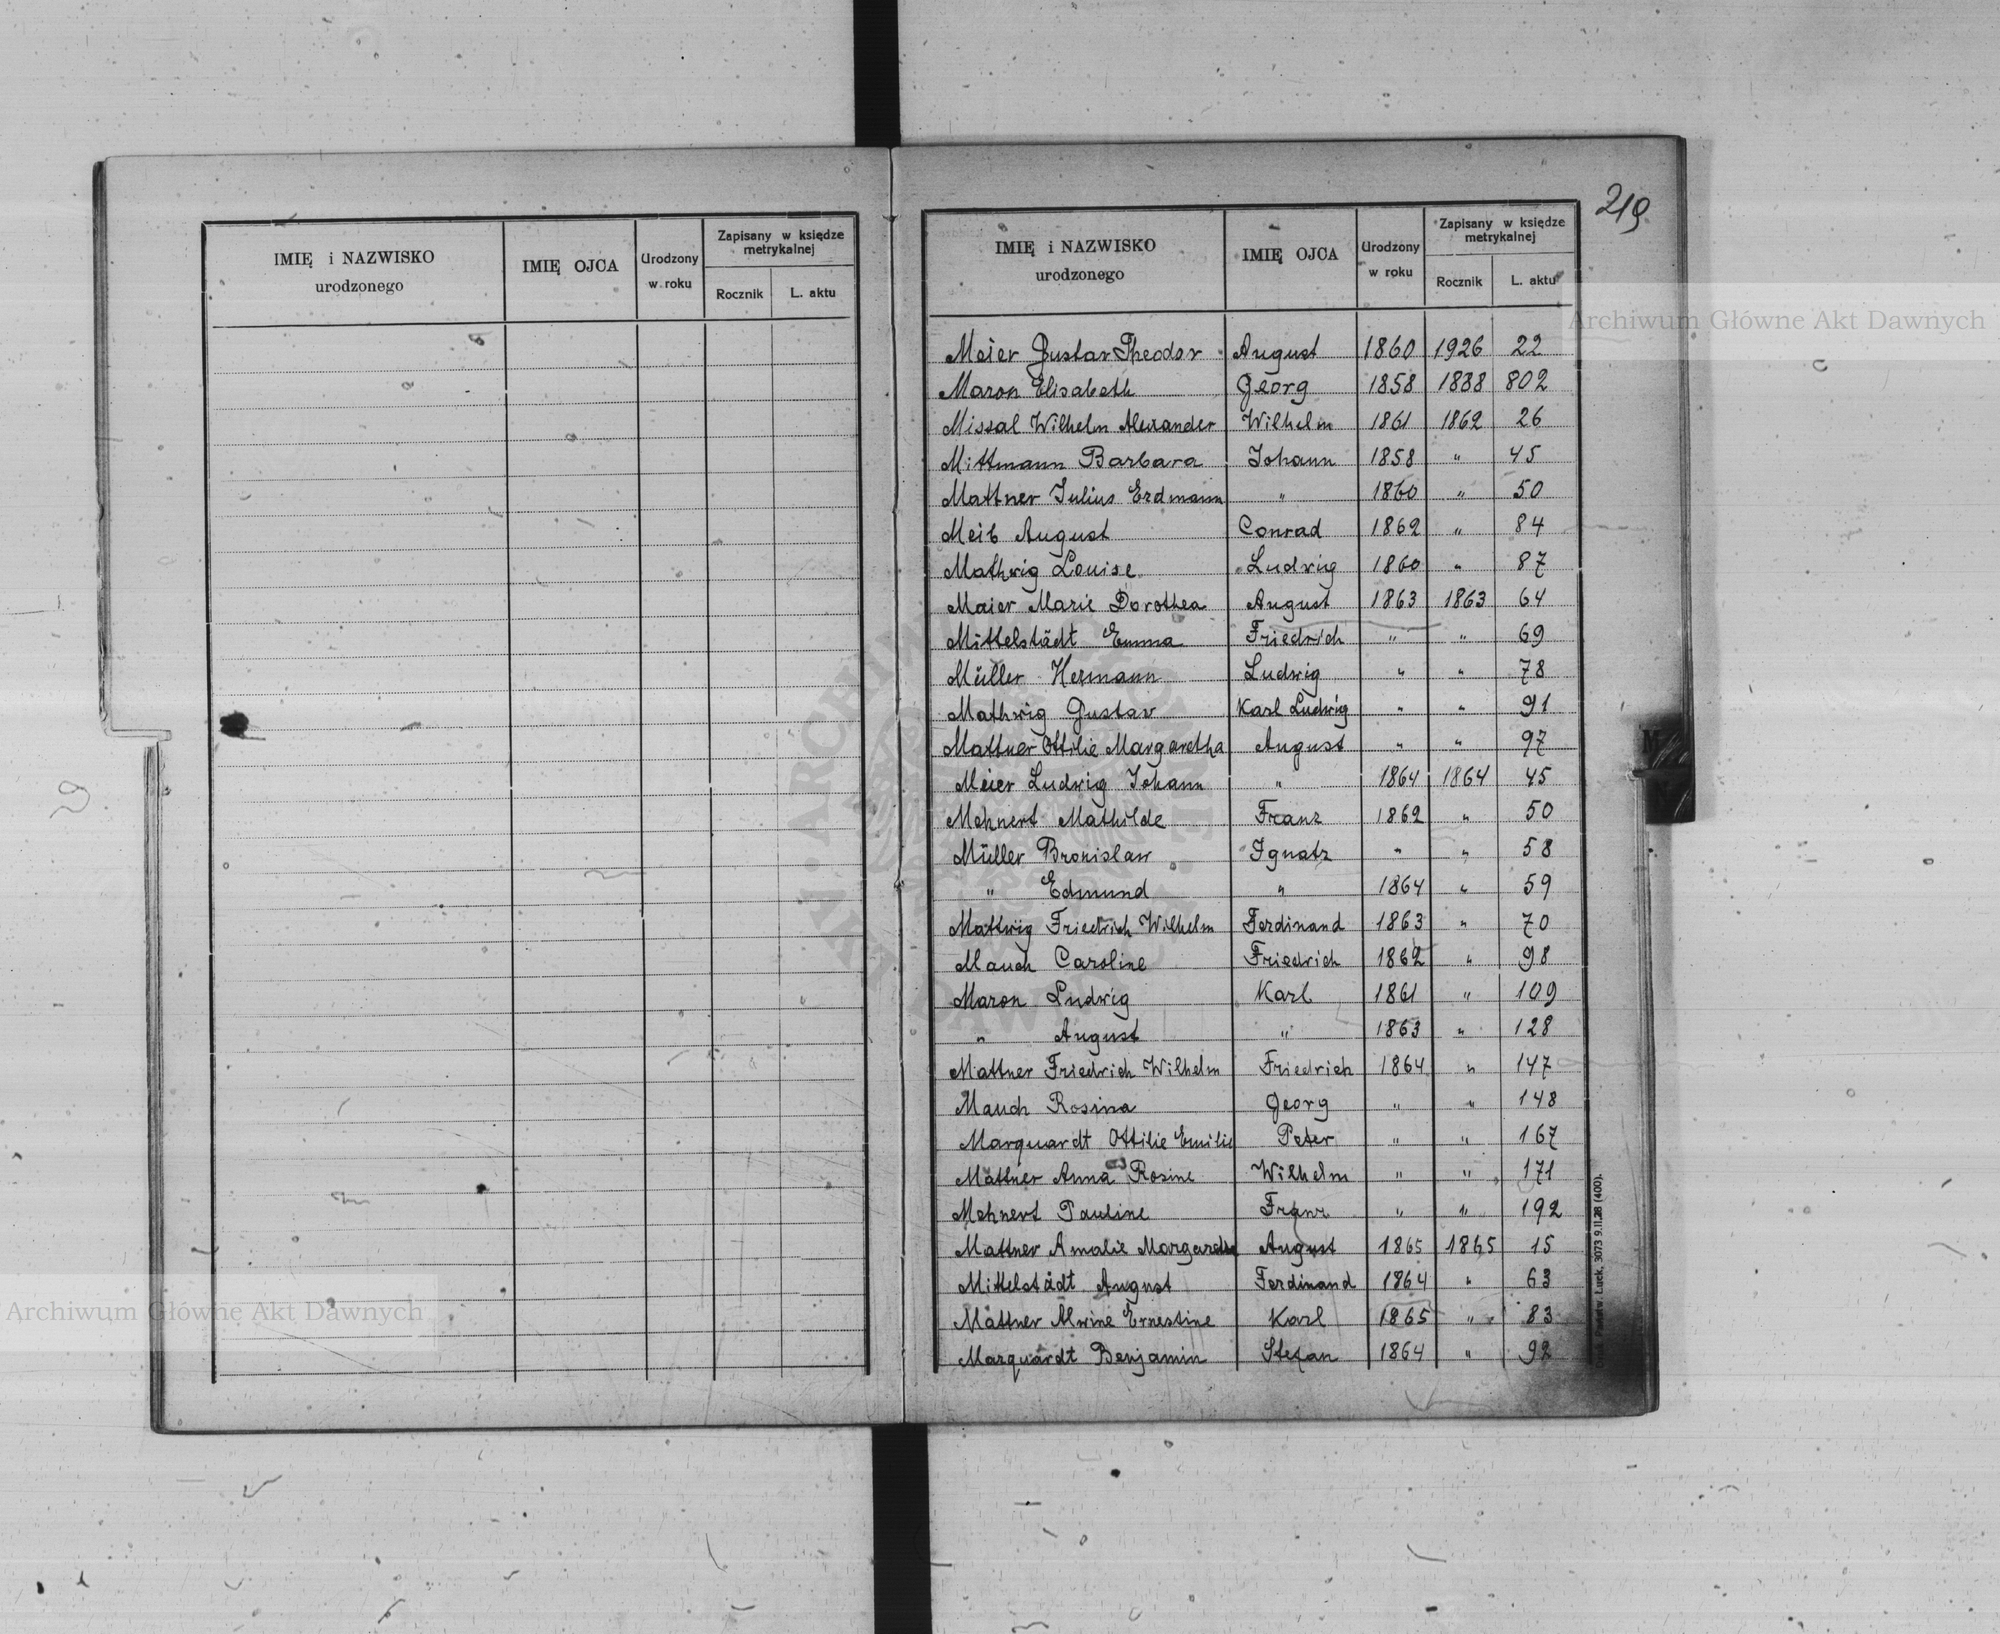 219
IMIĘ i NAZWISKO urodzonego IMIĘ OJCA Urodzony w roku Zapisany w księdze metrykalnej Rocznik L. aktu
IMIĘ i NAZWISKO urodzonego IMIĘ OJCA Urodzony w roku Zapisany w księdze metrykalnej Rocznik L. aktu
Archiwum Główne Akt Dawnych
Meier Gustav Theodor August 1860 1926 22
Maron Elisabeth Georg 1858 1838 802
Missal Wilhelm Alexander Wilhelm 1861 1862 26
Mittmann Barbara Johann 1858 " 45
Mattner Julius Erdmann " 1860 " 50
Meib August Conrad 1862 " 84
Mathwig Louise Ludwig 1860 " 87
Maier Marie Dorothea August 1863 1863 64
Mittelstädt Emma Friedrich " " 69
Müller Hermann Ludwig " " 78
Mathwig Gustav Karl Ludwig " " 91
Mattner Ottilie Margaretha August " " 97
Meier Ludwig Johann " 1864 1864 45
Mehnert Mathilde Franz 1862 " 50
Müller Bronislaw Ignatz " " 58
" Edmund " 1864 " 59
Mattwig Friedrich Wilhelm Ferdinand 1863 " 70
Mauch Caroline Friedrich 1862 " 98
Maron Ludwig Karl 1861 " 109
" August " 1863 " 128
Mattner Friedrich Wilhelm Friedrich 1864 " 147
Mauch Rosina Georg " " 148
Marquardt Ottilie Emilie Peter " " 167
Mattner Anna Rosine Wilhelm " " 171
Mehnert Pauline Franz " " 192
Mattner Amalie Margaretha August 1865 1865 15
Mittelstädt August Ferdinand 1864 " 63
Mattner Alwine Ernestine Karl 1865 " 83
Marquardt Benjamin Stefan 1864 " 92
Państw. Łuck, 3073 9.11.28 (400).
M
Archiwum Główne Akt Dawnych